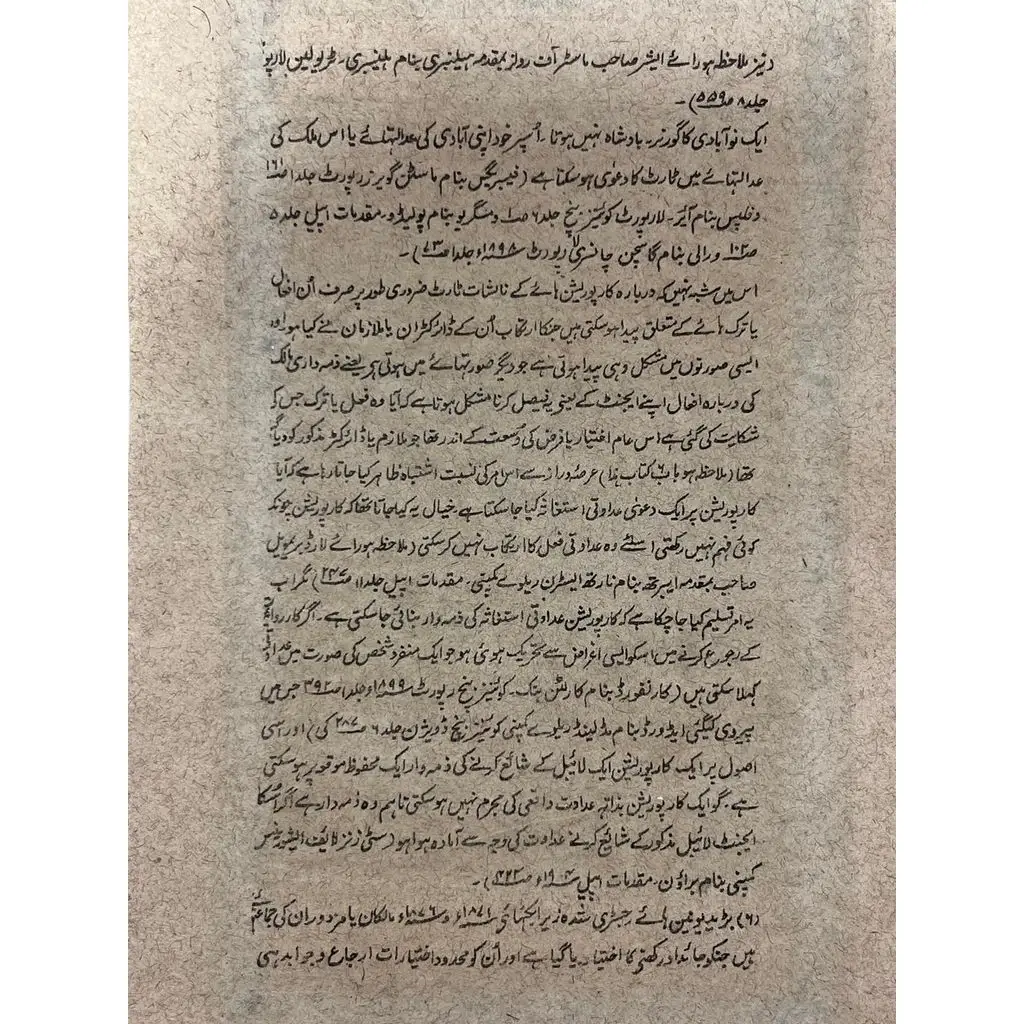 دنیز ملاحظہ ہو رائے ایشر صاحب ماسٹر آف رولز بمقدمہ ہیلنبری بنام ہلینبری۔ ٹریولین لا رپو
جلد ۸ صـ۵۵۹ـ) ۔
ایک نوآبادی کا گورنر۔ بادشاہ نہیں ہوتا ۔ اُسپر خود اپنی آبادی کی عدالتہائے یا اس ملک کی
عدالتہائے میں ٹارٹ کا دعوٰی ہوسکتا ہے (فیبریگس بنام ماسٹن گوپرز رپورٹ جلد۱ صـ۱۶۱ـ
و فلپس بنام آئر۔ لا رپورٹ کوئینز بنچ جلد ۶ صـ۱ـ و مسگریو بنام پولیڈو۔ مقدمات اپیل جلد ۵
صـ۱۰۲ـ و رالی بنام گاسجن چانسری لا رپورٹ سنہ۱۸۹۸ء جلد۱ صـ۷۳ـ) ۔
اس میں شبہ نہیں کہ دربارہ کارپوریشن ہائے کے نالشات ٹارٹ ضروری طور پر صرف اُن افعال
یا ترک ہائے کے متعلق پیدا ہوسکتی ہیں جنکا ارتکاب اُن کے ڈائرکٹران یا ملازمان نے کیا ہو اور
ایسی صورتوں میں مشکل وہی پیدا ہوتی ہے جو دیگر صورتہائے میں ہوتی ہے یعنے ذمہ داری مالک
کی دربارہ افعال اپنے ایجنٹ کے یعنی یہ فیصل کرنا مشکل ہوتا ہے کہ آیا وہ فعل یا ترک جس کی
شکایت کی گئی ہے اس عام اختیار یا فرض کی وسعت کے اندر تھا جو ملازم یا ڈائرکٹر مذکور کو دیا گیا
تھا (ملاحظہ ہو باب ۶ کتاب ہذا) عرصہ دراز سے اس امر کی نسبت اشتباہ ظاہر کیا جاتا رہا ہے کہ آیا
کارپوریشن پر ایک دعوٰی عداوتی استغاثہ کیا جاسکتا ہے۔ خیال یہ کیا جاتا تھا کہ کارپوریشن چونکہ
کوئی فہم نہیں رکھتی اسلئے وہ عداوتی فعل کا ارتکاب نہیں کرسکتی (ملاحظہ ہو رائے لارڈ بریمویل
صاحب بمقدمہ ایبرتھ بنام نارتھ ایسٹرن ریلوے کمپنی۔ مقدمات اپیل جلد۱۱ صـ۲۴۷ـ) مگر اب
یہ امر تسلیم کیا جاچکا ہے کہ کارپوریشن عداوتی استغاثہ کی ذمہ وار بنائی جاسکتی ہے۔ اگر کارروائی
کے رجوع کرنے میں اسکو ایسی اغراض سے تحریک ہوئی ہو جو ایک منفرد شخص کی صورت میں عداوتی
کہلا سکتی ہیں (کارنفورڈ بنام کارلٹن بنک۔ کوئینز بنچ رپورٹ سنہ۱۸۹۹ء جلد۱ صـ۳۹۲ـ جس میں
پیروی کیگئی ایڈورڈ بنام مڈلینڈ ریلوے کمپنی کوئینز بنچ ڈویژن جلد ۶ صـ۲۸۷ـ کی) اور اسی
اصول پر ایک کارپوریشن ایک لائیبل کے شائع کرنے کی ذمہ وار ایک محفوظ موقعہ پر ہوسکتی
ہے۔ گو ایک کارپوریشن بذاتہ عداوت واقعی کی مجرم نہیں ہوسکتی تاہم وہ ذمہ دار ہے اگر اُسکا
ایجنٹ لائیبل مذکور کے شائع کرنے عداوت کی وجہ سے آمادہ ہوا ہو (سٹی زنز لائیف انشورنس
کمپنی بنام براؤن۔ مقدمات اپیل سنہ۱۹۰۴ء صـ۴۲۳ـ) ۔
(۶) ٹریڈ یونین ہائے رجسٹری شدہ زیر ایکٹہائے سنہ۱۸۷۱ء و سنہ۱۸۷۶ء مالکان یا مزدوران کی جماعتیں
ہیں جنکو جائداد رکھنے کا اختیار دیا گیا ہے اور اُن کو محدود اختیارات ارجاع و جوابدہی